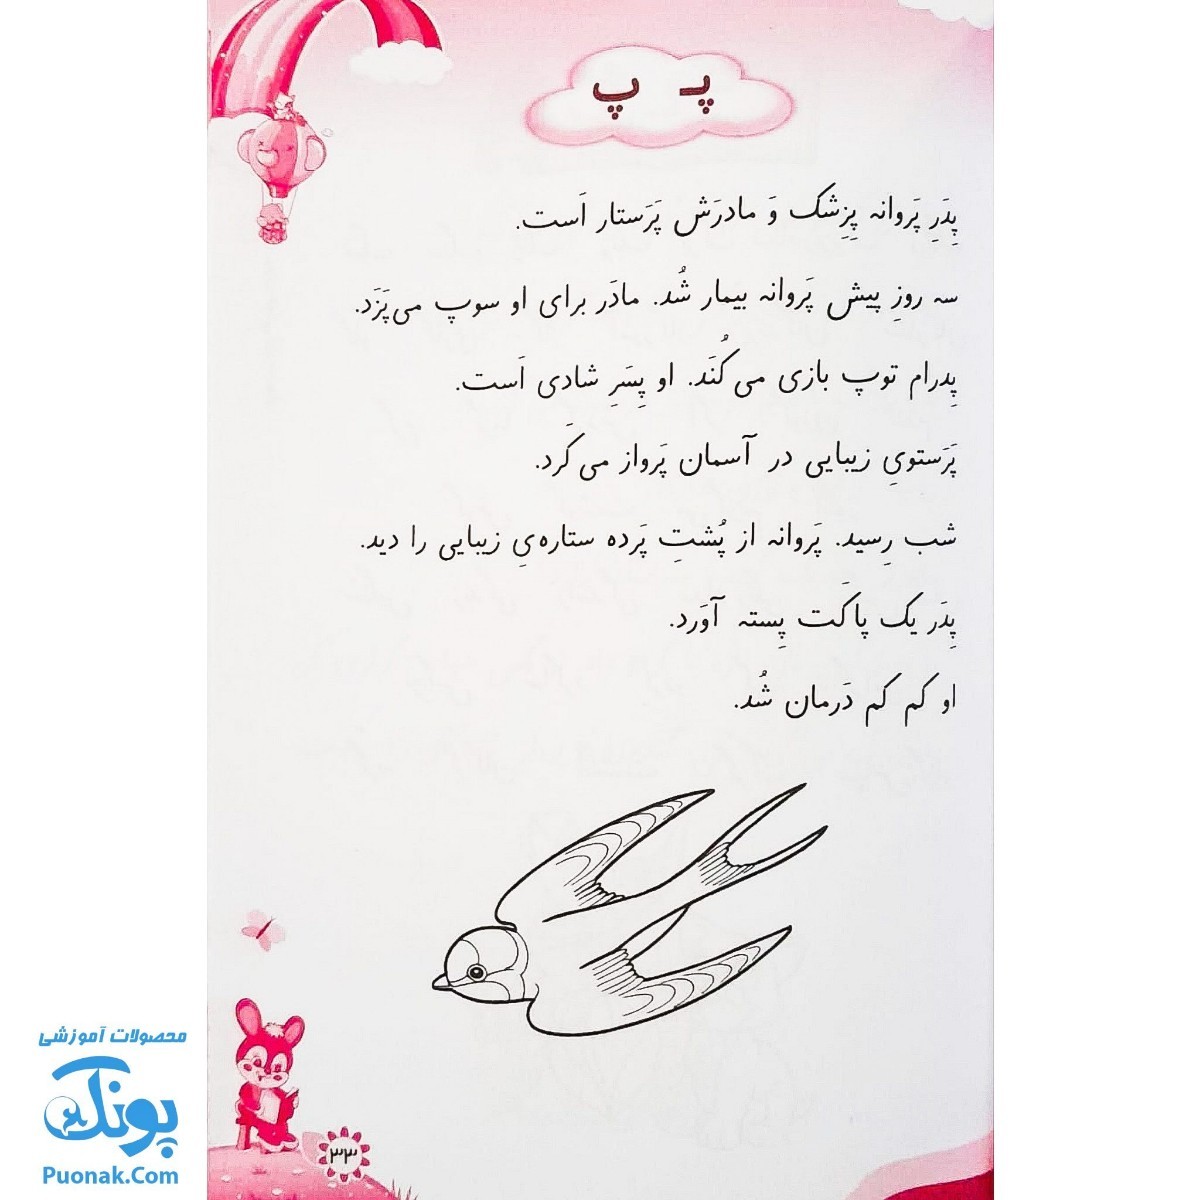 پـ پ
پِدَرِ پَروانه پِزِشک وَ مادَرَش پَرَستار اَست.
سه روزِ پیش پَروانه بیمار شُد. مادَر برای او سوپ می‌پَزَد.
پِدرام توپ بازی می‌کُنَد. او پِسَرِ شادی اَست.
پَرَستویِ زیبایی در آسمان پَرواز می‌کَرد.
شب رِسید. پَروانه از پُشتِ پَرده ستاره‌یِ زیبایی را دید.
پِدَر یک پاکَت پِسته آوَرد.
او کم کم دَرمان شُد.
محصولات آموزشی
پونک
Puonak.Com
۳۳